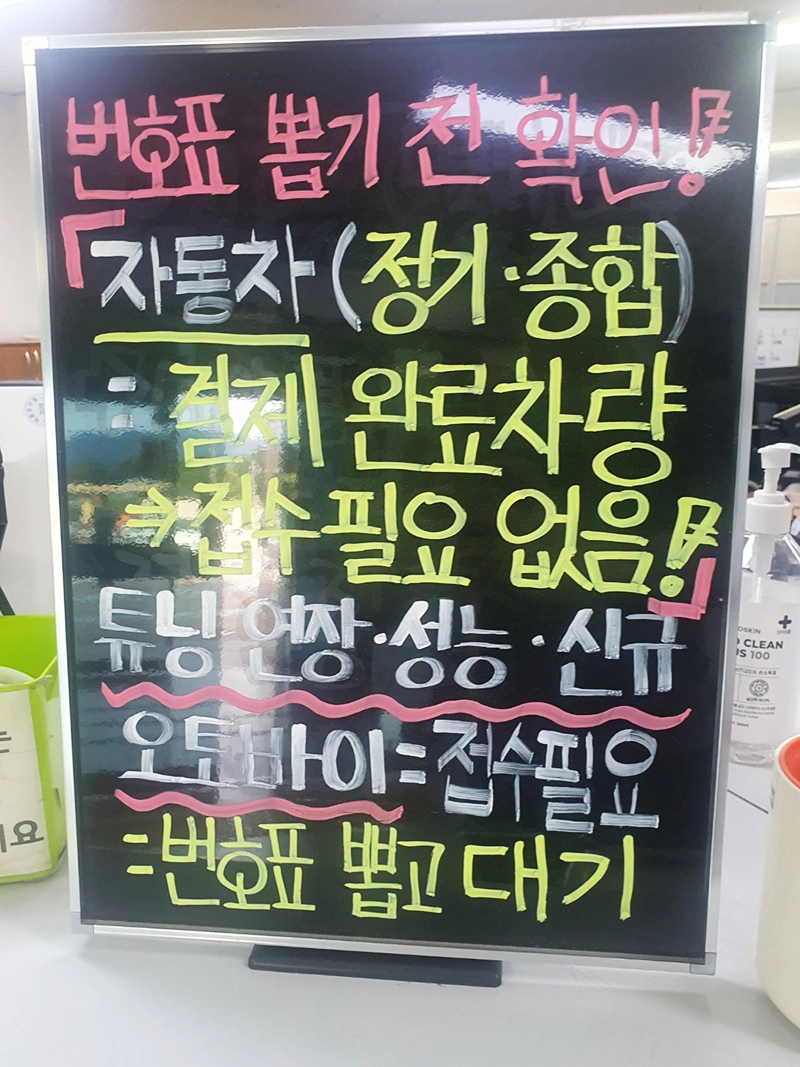 번호표 뽑기 전 확인!
「자동차 (정기·종합)
: 결제 완료차량
⇒ 접수 필요 없음!」
튜닝·연장·성능·신규
오토바이 = 접수필요
= 번호표 뽑고 대기
CLEAN
100
요